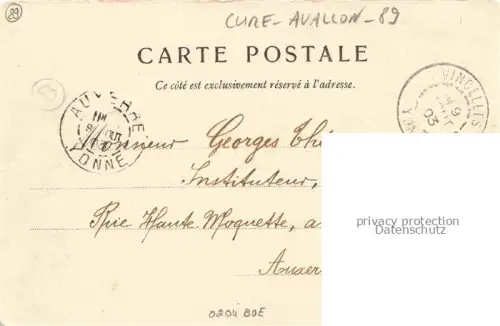 89
CURE - AVALLON - 89
CARTE POSTALE
Ce côté est exclusivement réservé à l'adresse.
B
AUXERRE
YONNE
VINCELLES
03
Monsieur Georges Thé
Instituteur,
Rue Haute Moquette, a
Auxer
privacy protection
Datenschutz
0204 BOE